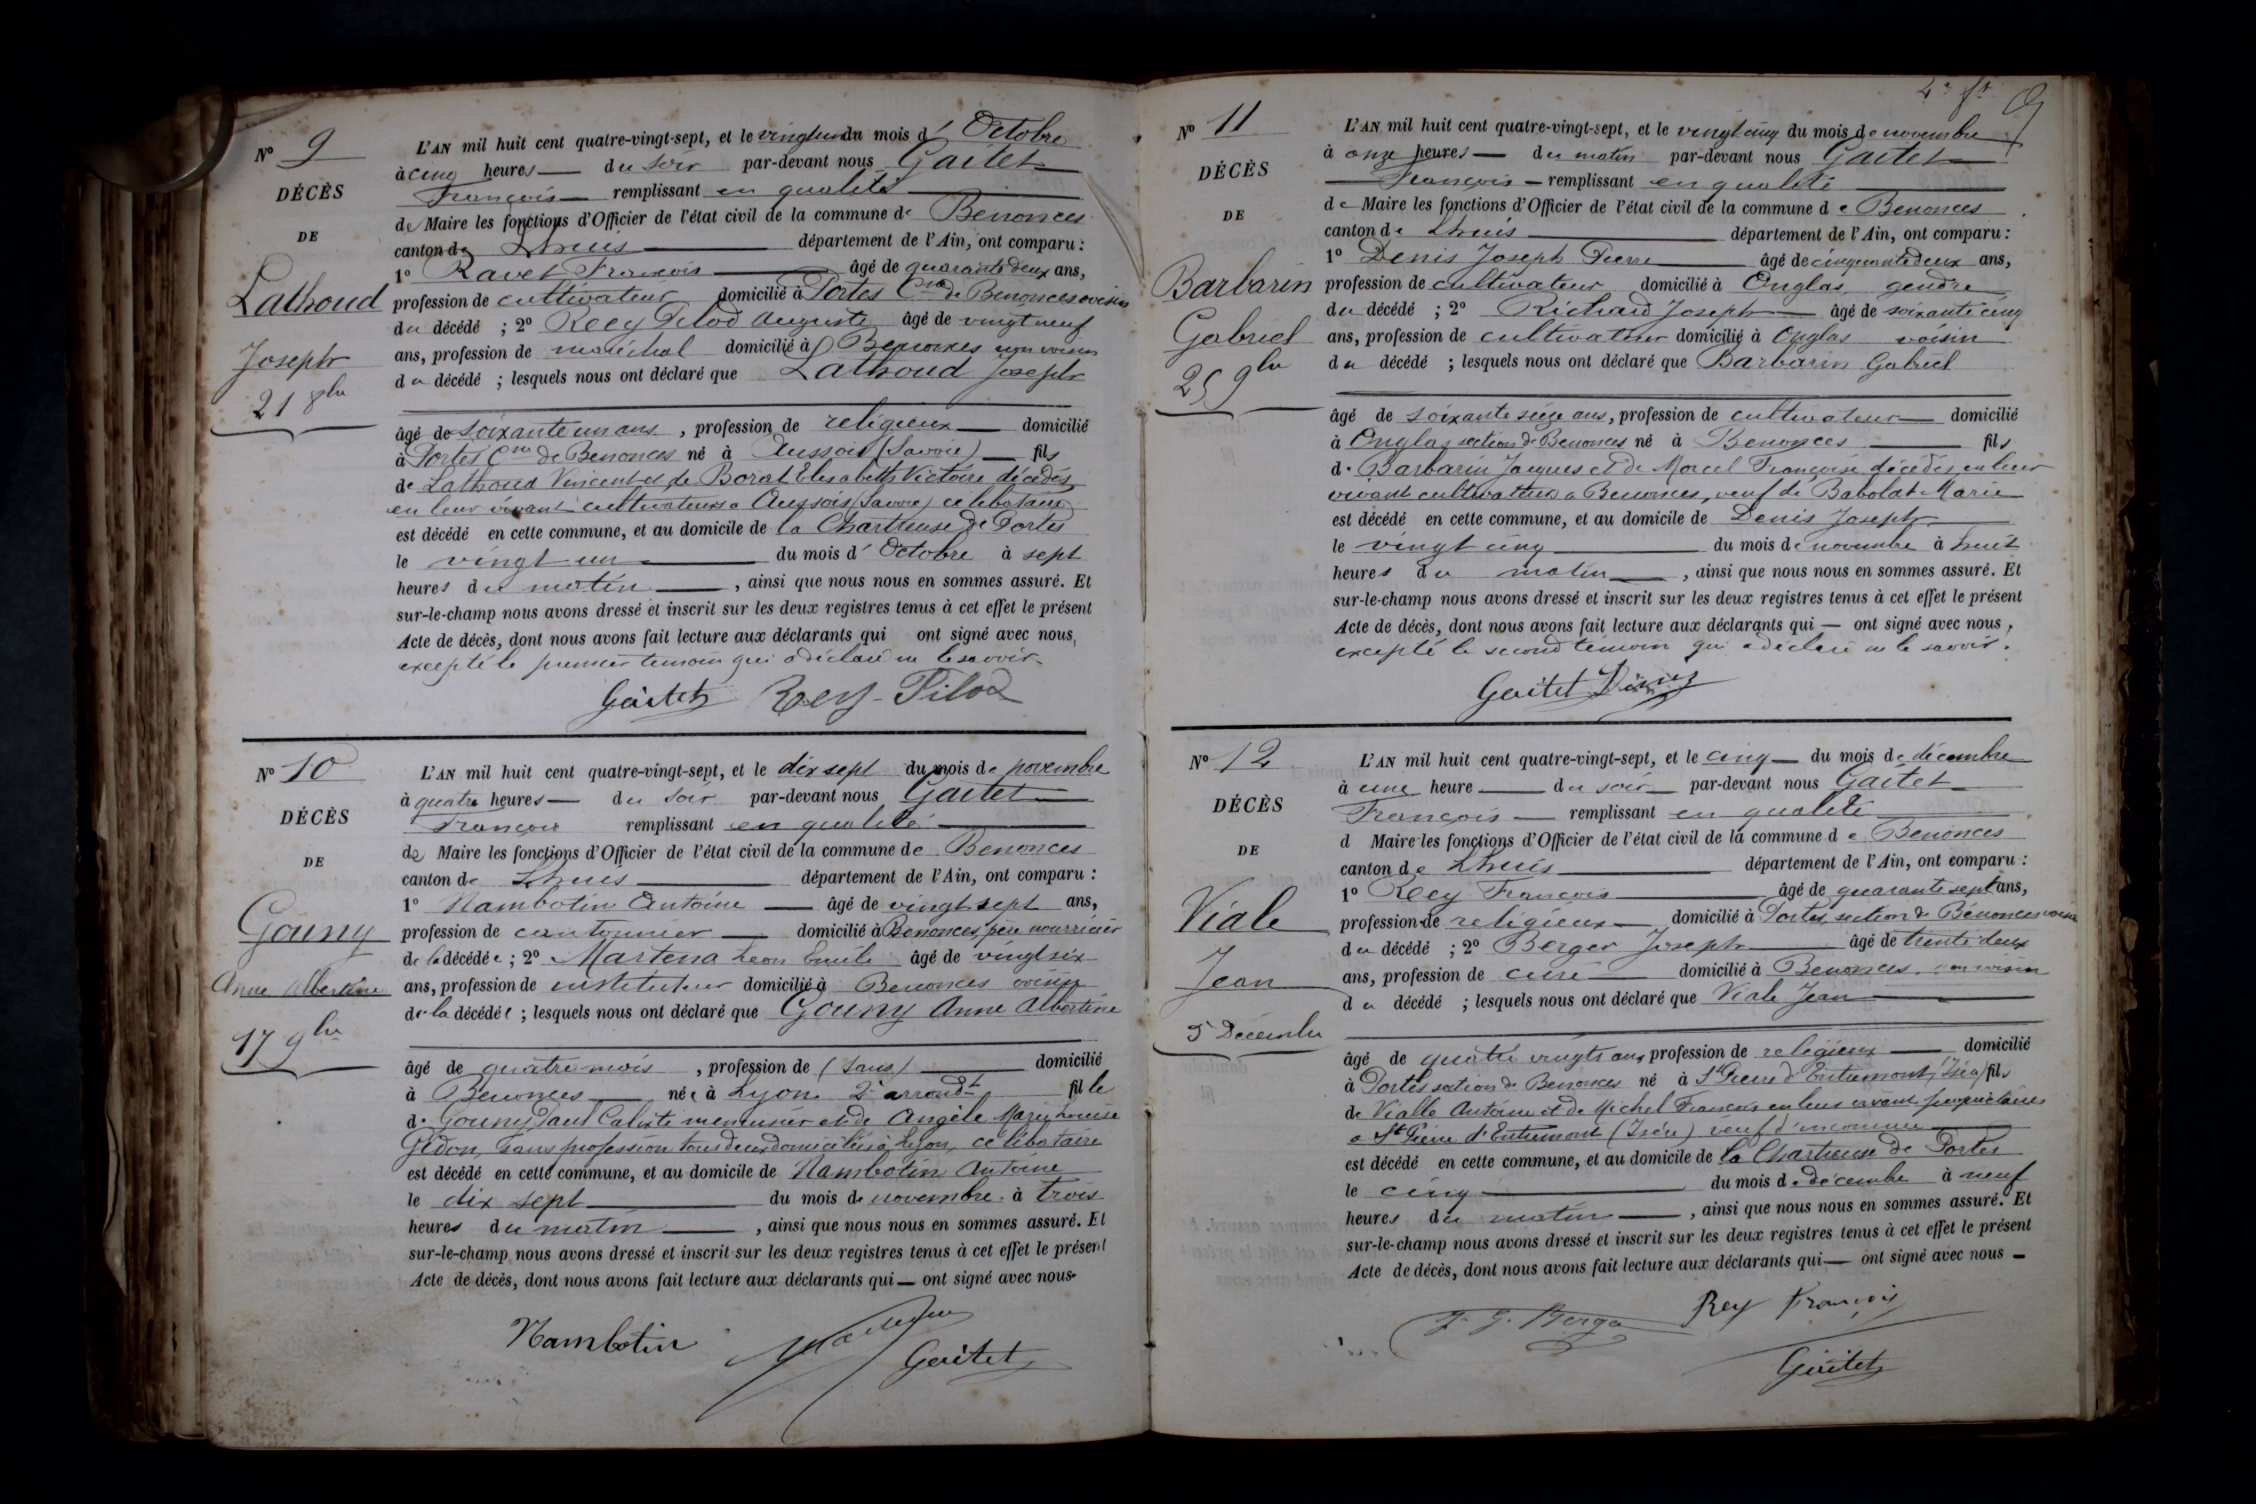 N° 9
DÉCÈS
DE
Lathoud
Joseph
21 8bre
L'AN mil huit cent quatre-vingt-sept, et le vingt un du mois d'Octobre
à cinq heures du soir par-devant nous Gaitet
François remplissant en qualité
de Maire les fonctions d'Officier de l'état civil de la commune de Benonces
canton de Lhuis département de l'Ain, ont comparu :
1° Ravet François âgé de quarante deux ans,
profession de cultivateur domicilié à Portes Cne de Benonces voisin
du décédé ; 2° Rey Pilod Auguste âgé de vingt neuf
ans, profession de maréchal domicilié à Benonces non voisin
du décédé ; lesquels nous ont déclaré que Lathoud Joseph
âgé de soixante un ans, profession de religieux domicilié
à Portes Cne de Benonces né à Aussois (Savoie) fils
de Lathoud Vincent et de Borat Elisabeth Victoire décédés
en leur vivant cultivateurs à Aussois (Savoie) célibataire
est décédé en cette commune, et au domicile de la Chartreuse de Portes
le vingt un du mois d'Octobre à sept
heures du matin, ainsi que nous nous en sommes assuré. Et
sur-le-champ nous avons dressé et inscrit sur les deux registres tenus à cet effet le présent
Acte de décès, dont nous avons fait lecture aux déclarants qui ont signé avec nous,
excepté le premier témoin qui a déclaré ne le savoir.
Gaitet Rey-Pilod
N° 10
DÉCÈS
DE
Gouny
Anne Albertine
17 9bre
L'AN mil huit cent quatre-vingt-sept, et le dix sept du mois de novembre
à quatre heures du soir par-devant nous Gaitet
François remplissant en qualité
de Maire les fonctions d'Officier de l'état civil de la commune de Benonces
canton de Lhuis département de l'Ain, ont comparu :
1° Nambotin Antoine âgé de vingt sept ans,
profession de cantonnier domicilié à Benonces, père nourricier
de la décédée ; 2° Martena Leon Emile âgé de vingt six
ans, profession de instituteur domicilié à Benonces voisin
de la décédée ; lesquels nous ont déclaré que Gouny Anne Albertine
âgé de quatre mois, profession de (sans) domicilié
à Benonces née à Lyon 2e arrondt fille
de Gouny Paul Calixte menuisier et de Angèle Marie Louise
Gédon, sans profession tous deux domiciliés à Lyon, célibataire
est décédé en cette commune, et au domicile de Nambotin Antoine
le dix sept du mois de novembre à trois
heures du matin, ainsi que nous nous en sommes assuré. Et
sur-le-champ nous avons dressé et inscrit sur les deux registres tenus à cet effet le présent
Acte de décès, dont nous avons fait lecture aux déclarants qui — ont signé avec nous
Nambotin
Gaitet
N° 11
DÉCÈS
DE
Barbarin
Gabriel
25 9bre
L'AN mil huit cent quatre-vingt-sept, et le vingt cinq du mois de novembre
à onze heures du matin par-devant nous Gaitet
François remplissant en qualité
de Maire les fonctions d'Officier de l'état civil de la commune de Benonces
canton de Lhuis département de l'Ain, ont comparu :
1° Denis Joseph Pierre âgé de cinquante deux ans,
profession de cultivateur domicilié à Onglas, gendre
du décédé ; 2° Richard Joseph âgé de soixante cinq
ans, profession de cultivateur domicilié à Onglas voisin
du décédé ; lesquels nous ont déclaré que Barbarin Gabriel
âgé de soixante seize ans, profession de cultivateur domicilié
à Onglas section de Benonces né à Benonces fils
de Barbarin Jacques et de Marcel Françoise décédés en leur
vivant cultivateurs à Benonces, veuf de Babolat Marie
est décédé en cette commune, et au domicile de Denis Joseph
le vingt cinq du mois de novembre à huit
heures du matin, ainsi que nous nous en sommes assuré. Et
sur-le-champ nous avons dressé et inscrit sur les deux registres tenus à cet effet le présent
Acte de décès, dont nous avons fait lecture aux déclarants qui — ont signé avec nous,
excepté le second témoin qui a déclaré ne le savoir.
Gaitet Denis
N° 12
DÉCÈS
DE
Viale
Jean
5 Décembre
L'AN mil huit cent quatre-vingt-sept, et le cinq du mois de décembre
à une heure du soir par-devant nous Gaitet
François remplissant en qualité
d Maire les fonctions d'Officier de l'état civil de la commune de Benonces
canton de Lhuis département de l'Ain, ont comparu :
1° Rey François âgé de quarante sept ans,
profession de religieux domicilié à Portes, section de Bénonces voisin
du décédé ; 2° Berger Joseph âgé de trente deux
ans, profession de curé domicilié à Benonces non voisin
du décédé ; lesquels nous ont déclaré que Viale Jean
âgé de quatre vingts ans, profession de religieux domicilié
à Portes section de Benonces né à St Pierre d'Entremont (Isère) fils
de Vialle Antoine et de Michel François en leur vivant propriétaires
à St Pierre d'Entremont (Isère) veuf d'inconnue
est décédé en cette commune, et au domicile de la Chartreuse de Portes
le cinq du mois de décembre à neuf
heures du matin, ainsi que nous nous en sommes assuré. Et
sur-le-champ nous avons dressé et inscrit sur les deux registres tenus à cet effet le présent
Acte de décès, dont nous avons fait lecture aux déclarants qui — ont signé avec nous —
Rey François
J. J. Berger
Gaitet